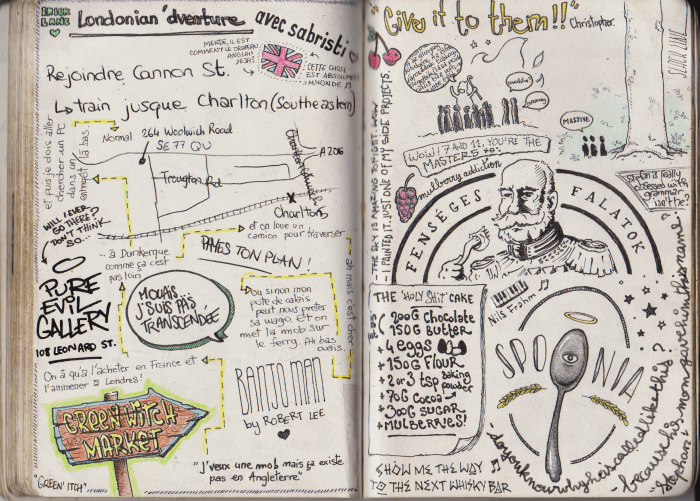 BRICK
LANE
Londonian 'dventure avec sabristi
MERDE, IL EST
COMMENT LE DRAPEAU
ANGLAIS
DÉJÀ?
CETTE CHOSE
EST ABSOLUMENT
IMMONDE
Rejoindre Cannon St.
↳ train jusque Charlton (Southeastern)
et puis je dois aller
chercher un PC
dans un
là bas.
Normal
264 Woolwich Road
SE7 7QU
A206
Trougton Rd
Charlton
WILL I EVER
GO THERE?
DON'T THINK
SO...
et on loue un
camion pour traverser
... à Dunkerque
comme ça c'est
pas loin
PAYES TON PLAN!
PURE
EVIL
GALLERY
108 LEONARD ST.
MOUAIS...
J'SUIS PAS
TRANSCENDÉE
Ou sinon mon
pote de calais
peut nous prêter
sa wago et on
met la mob sur
le ferry. Ah bas
ouais.
ah mais c'est cher
On a qu'à l'acheter en France et
l'ammener à Londres!
BANJOMAN
by ROBERT LEE
GREENWITCH
MARKET
"GREEN' ITCH"
"J'veux une mob mais ça existe
pas en Angleterre"
Give it to them!!"
Christopher.
MASSIVE
WOW! 7 AND 11, YOU'RE THE
MASTERS to:
mulberry addiction
- THE SKY IS AMAZING TONIGHT. WOW
- I PAINTED IT. JUST ONE OF MY SIDE PROJECTS.
FENSÉGES FALATOK
Stefan is really
obsessed with
grammar,
isn't he?
THE "HOLY SHIT" CAKE
200G Chocolate
150G Butter
+ 4 eggs
+ 150G Flour
+ 2 or 3 tsp baking
powder
+ 70G Cocoa
+ 300G SUGAR
+ MULBERRIES!
Nils Frahm
SPOONIA
- do you know why his is called called like this?
SHOW ME THE WAY
TO THE NEXT WHISKY BAR